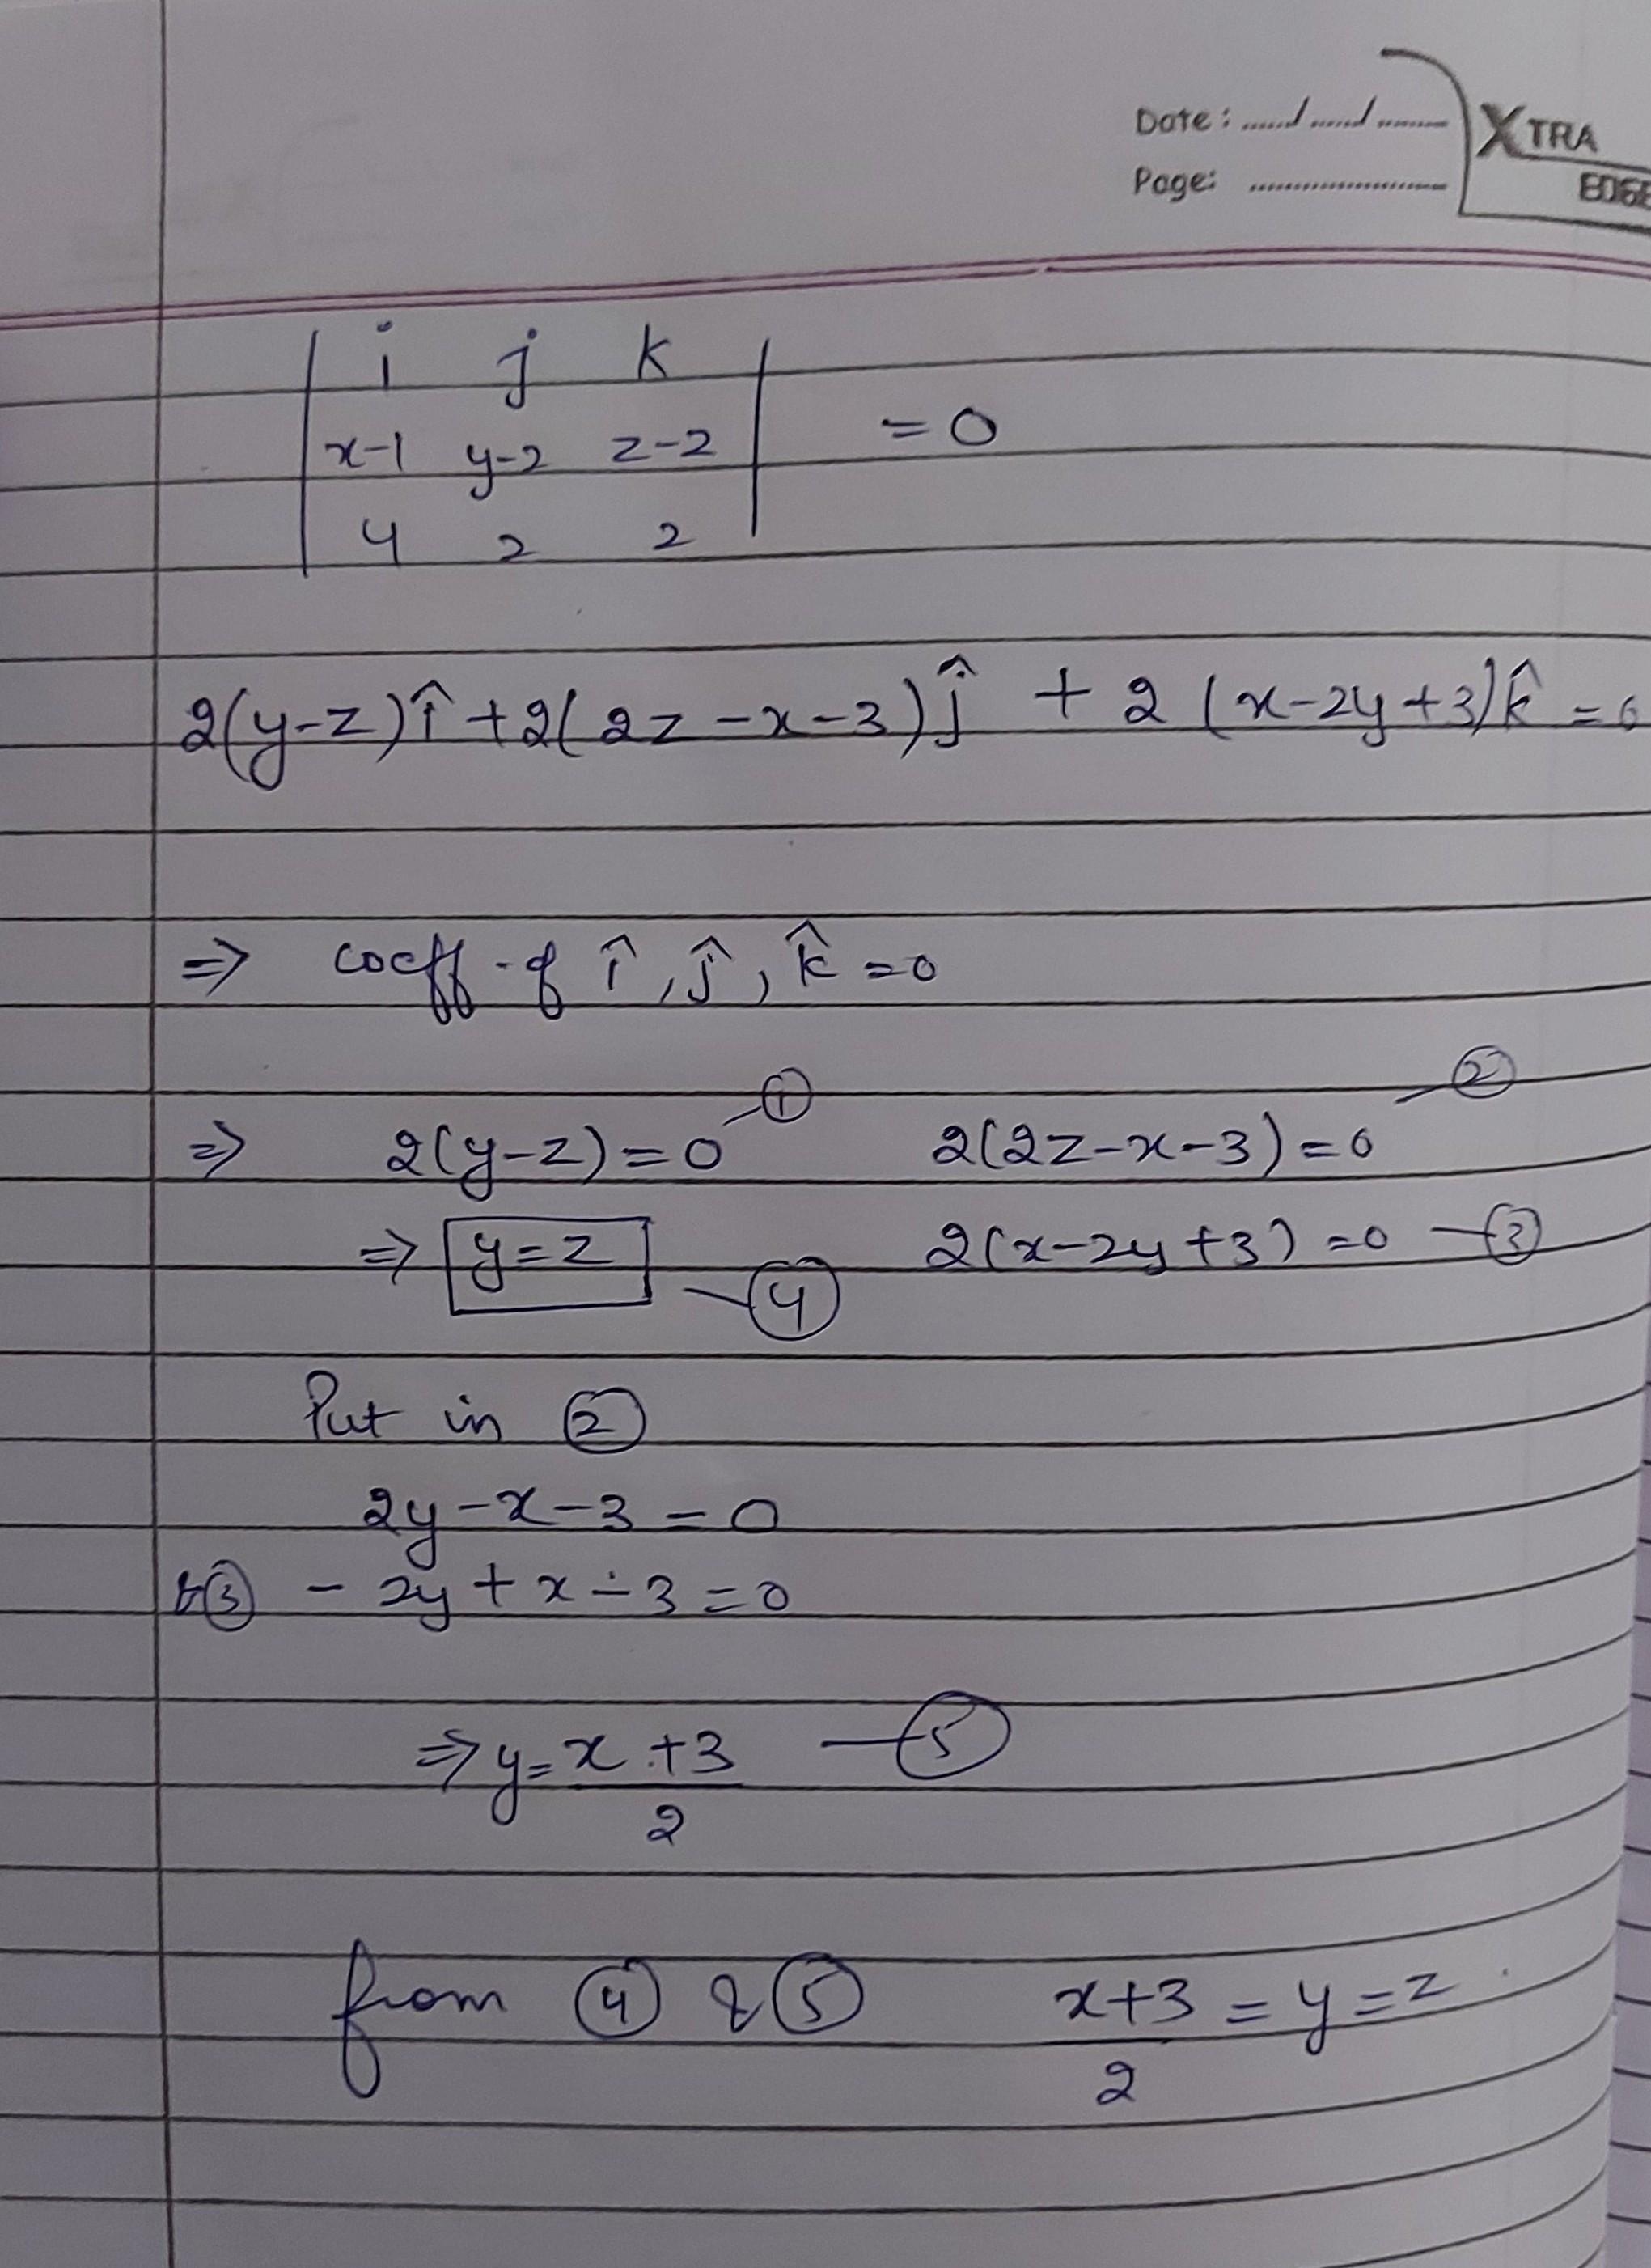 Date: ....../....../........
Page: ........................
XTRA
EDGE
i j k
x-1 y-2 z-2 = 0
4 2 2
2(y-z)î + 2(2z-x-3)ĵ + 2(x-2y+3)k̂ = 0
⇒ coeff. of î, ĵ, k̂ = 0
⇒ 2(y-z)=0 —① 2(2z-x-3)=0 —②
⇒ y=z —④ 2(x-2y+3)=0 —③
Put in ②
2y-x-3=0
& ③ -2y+x-3=0
⇒ y= x+3 —⑤
2
from ④ & ⑤ x+3 = y = z
2